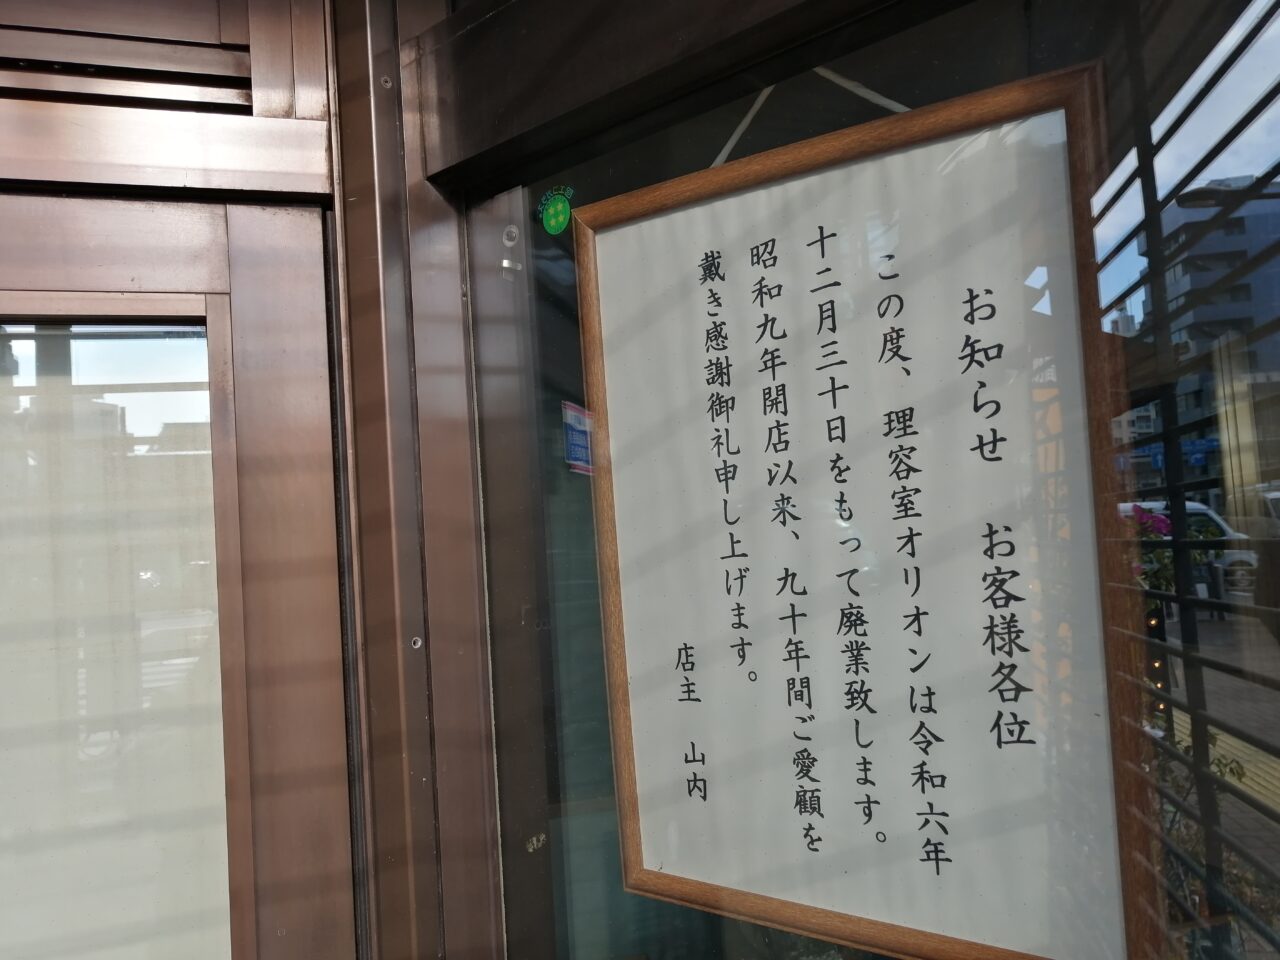 お知らせ　お客様各位
この度、理容室オリオンは令和六年
十二月三十日をもって廃業致します。
昭和九年開店以来、九十年間ご愛顧を
戴き感謝御礼申し上げます。
店主　山内